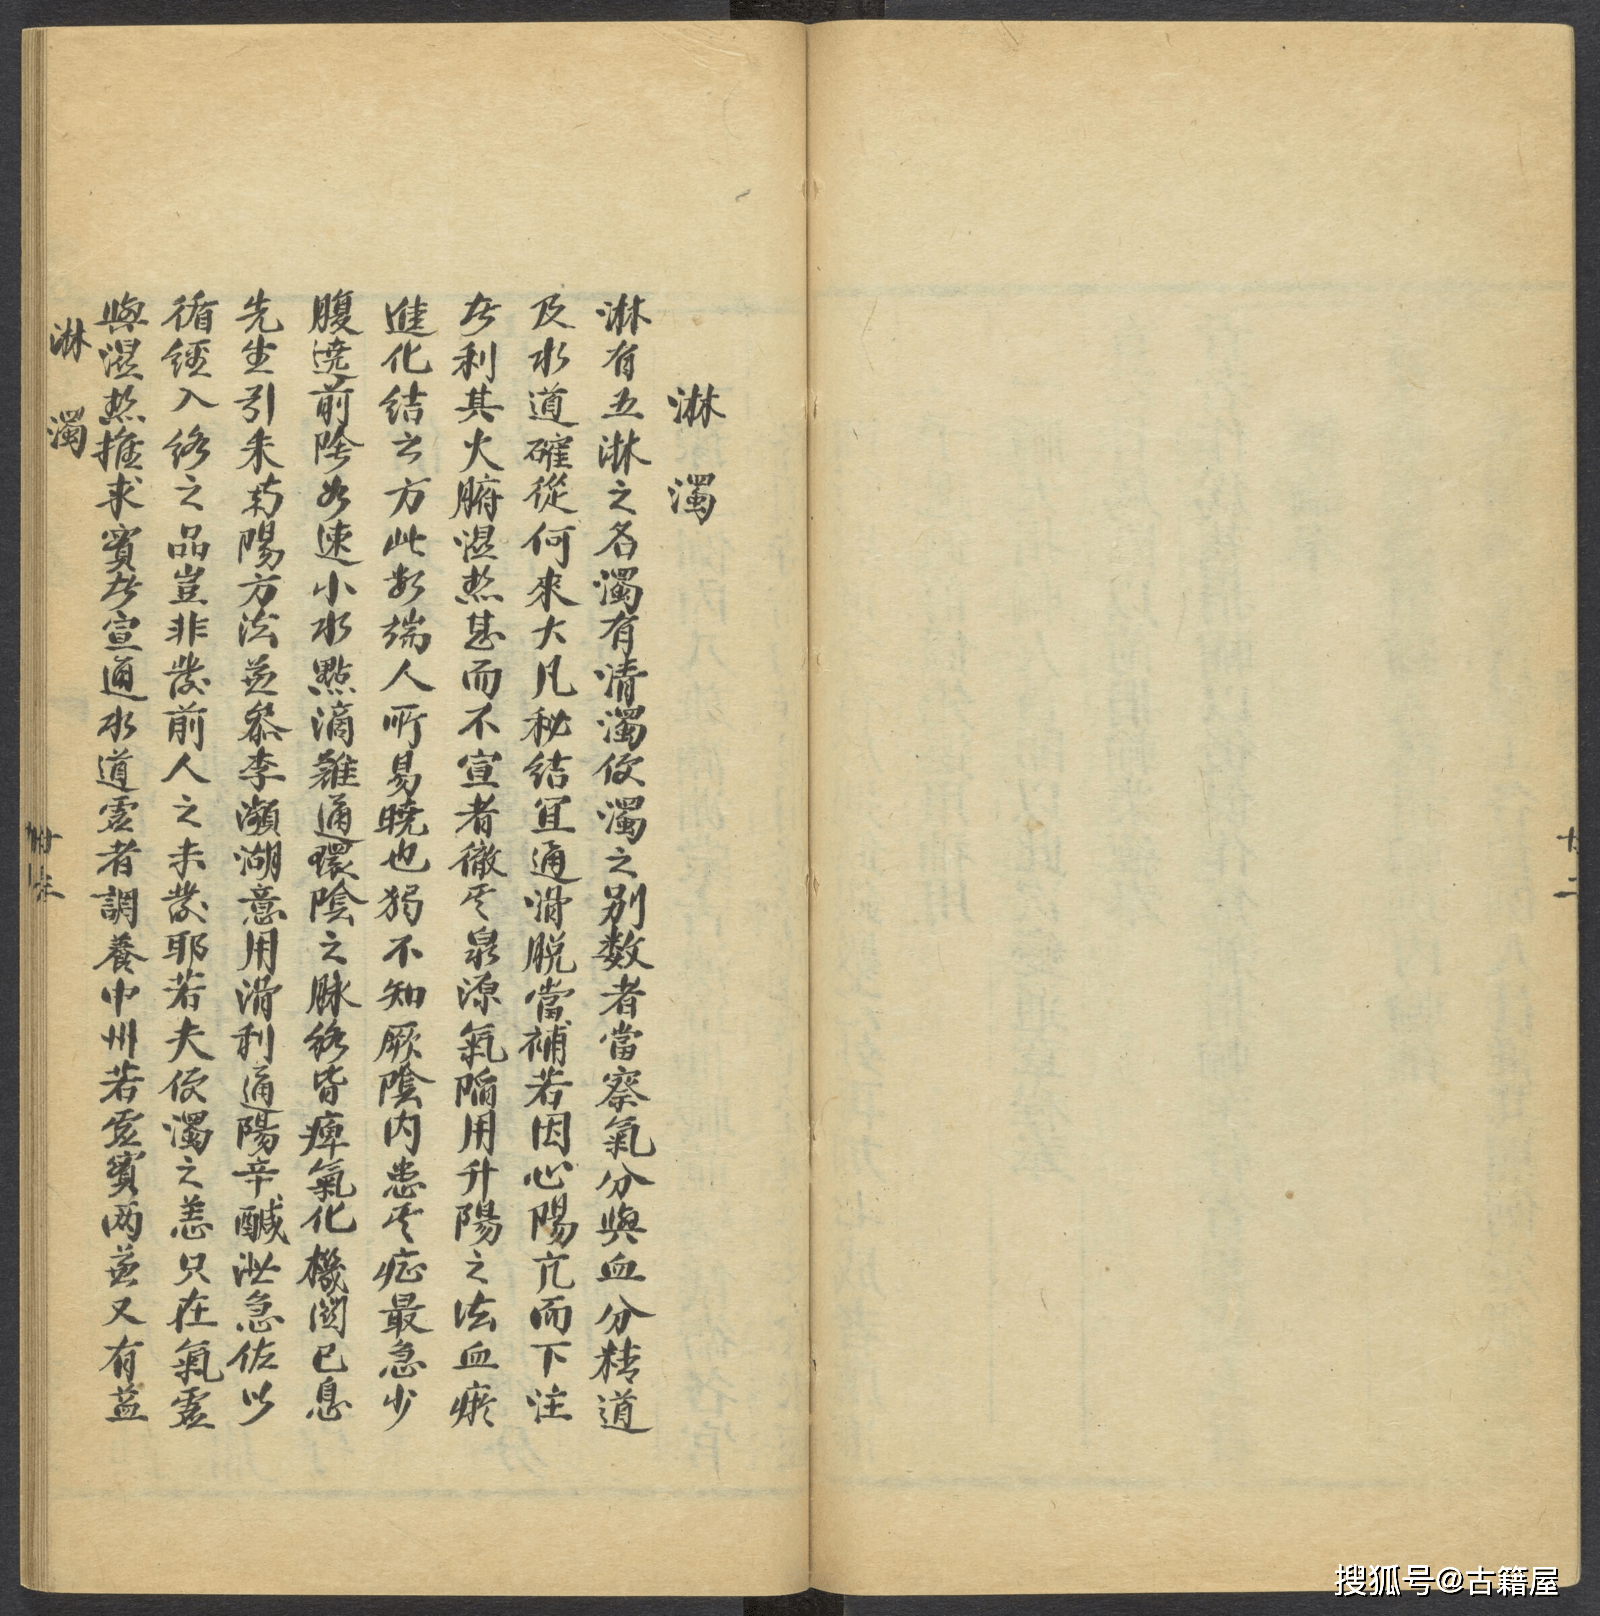 十二
淋濁
淋有五淋之名濁有清濁便濁之別数者當察氣分與血分精道
及水道確從何來大凡秘結宜通滑脱當補若因心陽亢而下注
者利其火腑濕热甚而不宣者徹其泉源氣陷用升陽之法血瘀
進化結之方此数端人所易曉也獨不知厥陰内患其症最急少
腹遶前陰如速小水點滴難通環陰之脉络皆痺氣化機関已息
先生引朱南陽方法並叅李瀕湖意用滑利通陽辛鹹泄急佐以
循經入络之品豈非發前人之未發耶若夫便濁之恙只在氣虛
與濕热推求實者宣通水道虛者調養中州若虛實两兼又有益
淋濁
搜狐号@古籍屋